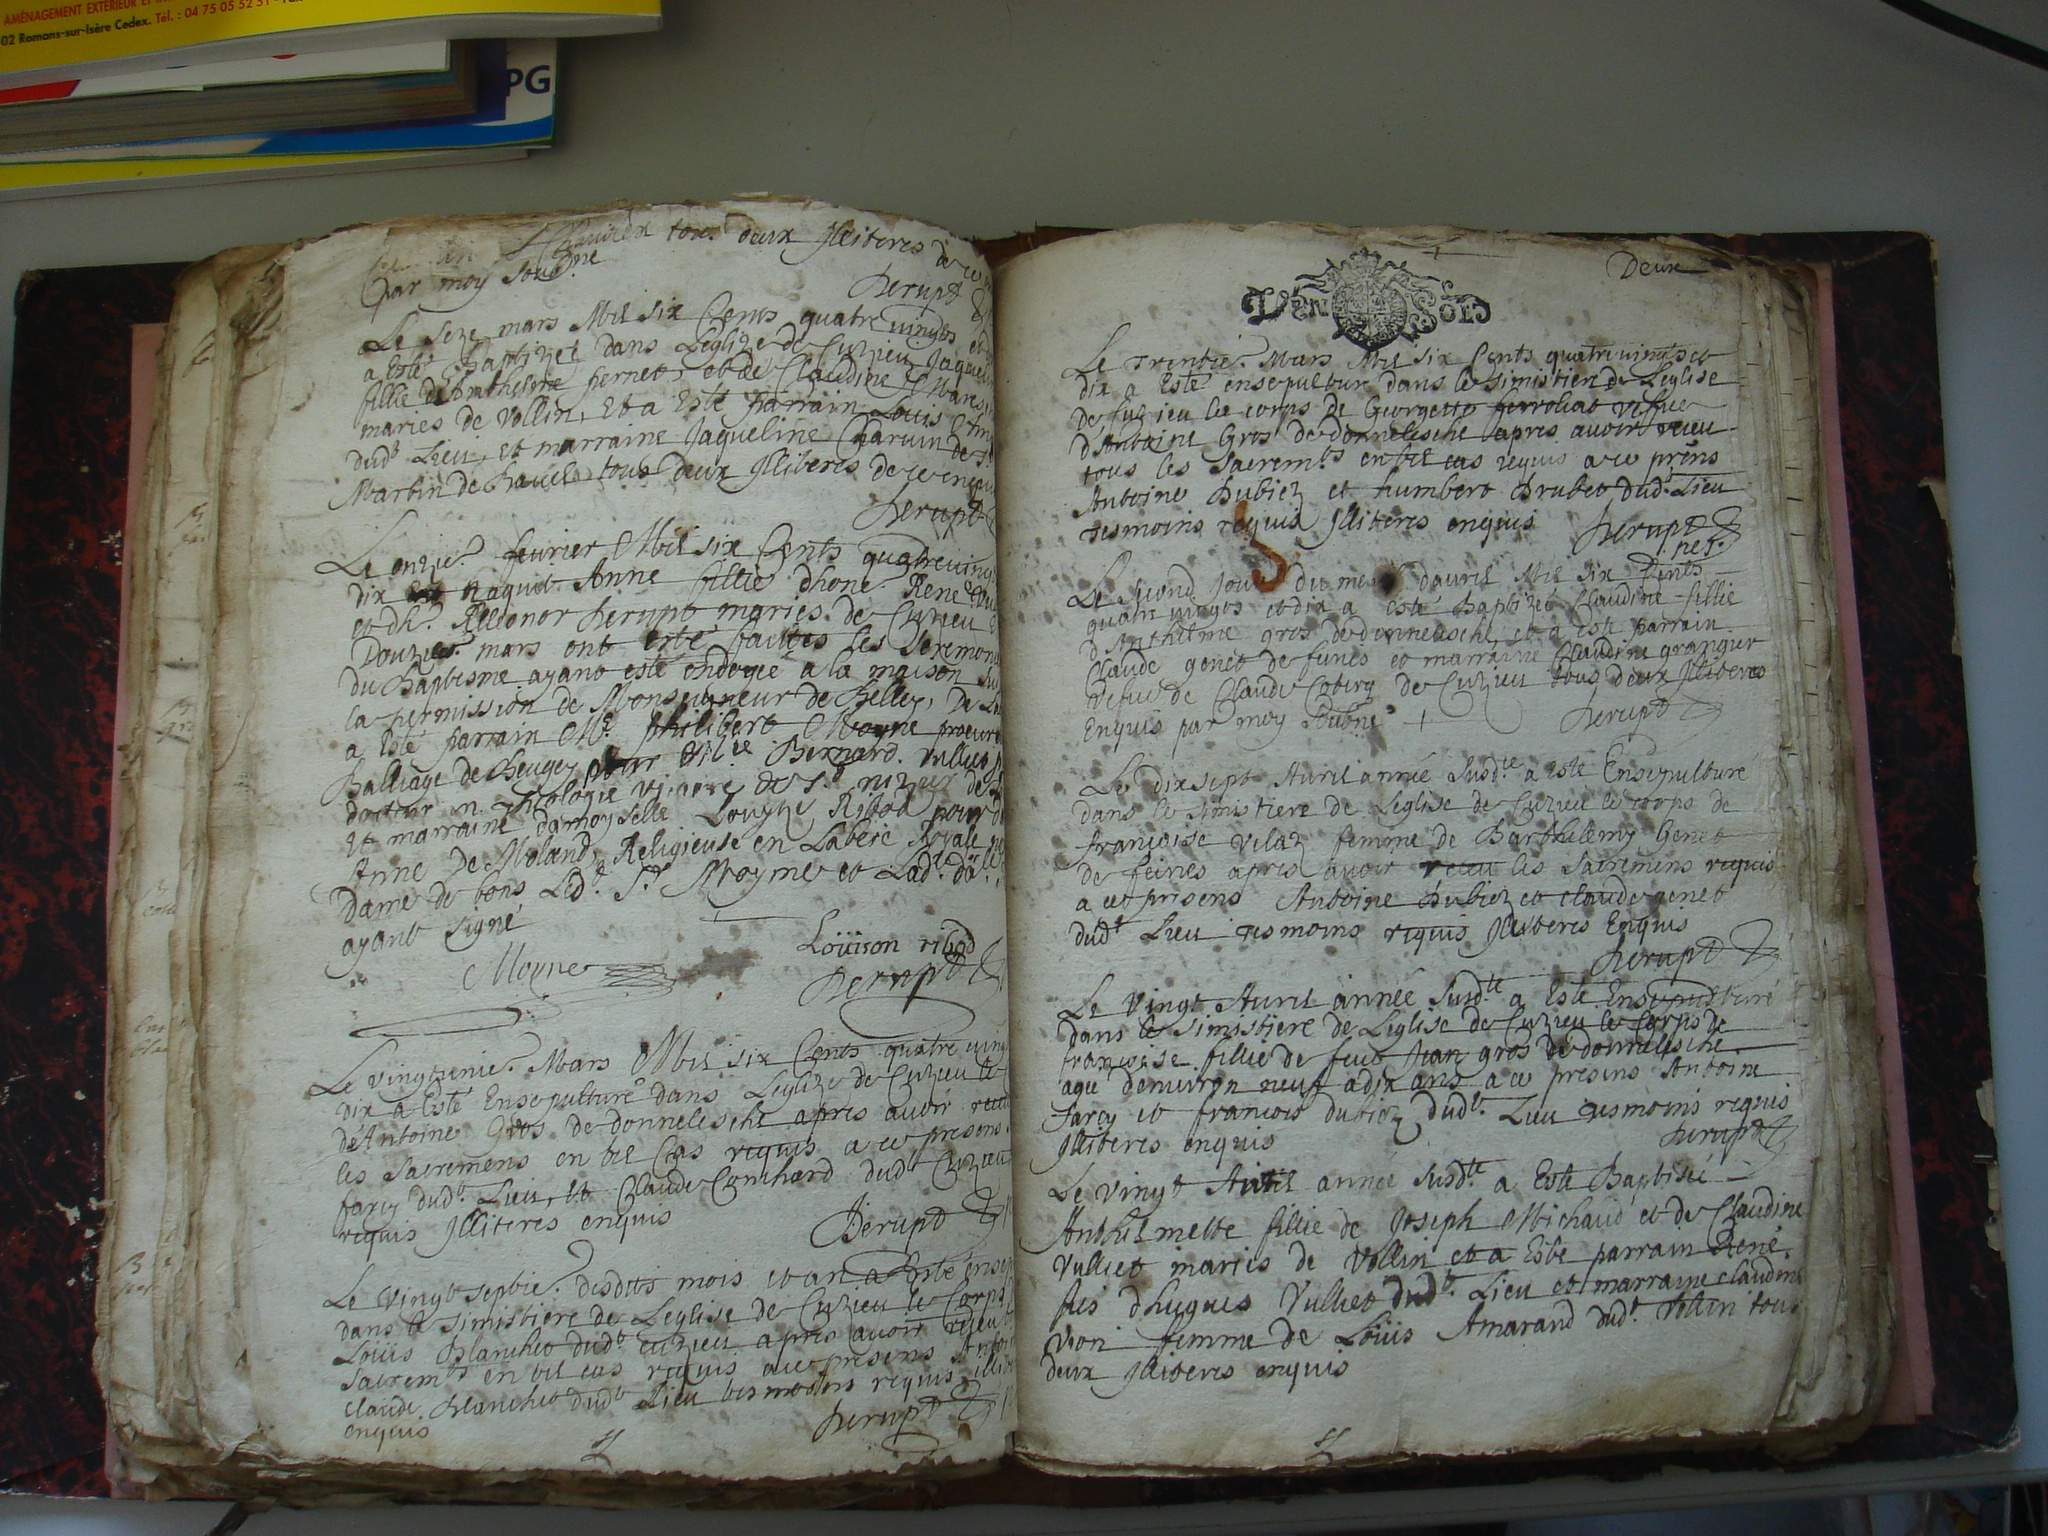 AMÉNAGEMENT EXTÉRIEUR ET
02 Romans-sur-Isère Cedex. Tél. : 04 75 05 52 51
PG
tous deux Jlliteres de ce
par moy soubne
Derupt
Le seze mars Mil six Cents quatre vingts et
a Esté Baptizée dans Leglize de Cuzieu Jaqueli
fillie de Anthelme fernet, et de Claudine
maries de Vollin, Et a Esté parrain Louis
dudt Lieu, et marraine Jaqueline Charvin de St
Martin de tous deux Jlliteres de ce enquis
Derupt
Le onzie. feurier Mil six Cents quatre vingt
dix Naquit Anne fillie dhone. René
et dlle. Alleonor Derupt maries de Cuzieu
Douzies. mars ont esté faittes les seremonies
du Baptisme ayant esté endoyé a la maison
la permission de Monseigneur de Belley, De
a Esté parrain Me. philibert Moyne procure
Balliage de Beugey pour Bernard Vulliet
docteur en Theologie
et marraine damoyselle Louyze Ribod pour
Anne De Moland Religieuse en Labeie Royale
Dame de bons Led. Sr Moyne et Lad. dlle.
ayant signé
Louïson ribod
Moyne Derupt
Le vingtienie. Mars Mil six Cents quatre vingt
dix a Esté Ensepulturé dans Leglize de Cuzieu le
dé Antoine Gros de donnelesche apres auoir receu
les Sacremens en tel Cas requis a ce presens
farcy dudt. Lieu, et Claude Conchard dudt Cuzieu
requis Jlliteres enquis Derupt
Le Vingt septie. desdits mois et an a Esté ensep
dans le simistiere de Leglise de Cuzieu le Corps
Louis blanchet dudt cuzieu apres auoir receu
Sacremts en tel cas requis a ce presens Antoi
claude blanchet dudt Lieu tesmoins requis illit
enquis Derupt
Deux
VN SOLS
Le Trentie. Mars Mil six Cents quatre vingts et
dix a Esté ensepulturé dans le simistiere de Leglise
de Cuzieu le corps de Georgette ferrolliat vefue
dAntoine Gros de donnelesche apres auoir receu
tous les Sacremts en tel cas requis a ce prens
Antoine Dubiez et humbert brulet dud. Lieu
tesmoins requis Jlliteres enquis Derupt
Le second jour du mois dauril Mil six Cents
quatre vingts et dix a esté baptizée Claudine fillie
dAnthelme gros de donnelesche, et a esté parrain
Claude genet de funes et marraine Claudine grangier
vefue de Claude Cobery de Cuzieu tous deux Jlliteres
Enquis par moy soubne Derupt
Le dix sept Auril année susdte a esté Ensepulturé
dans le simistiere de Leglise de Cuzieu le corps de
françoise Vilaz femme de Barthelemy Genet
de feines apres auoir receu les Sacremens requis
a ce presens Antoine dubiez et claude genet
dudt Lieu tesmoins requis Jlliteres Enquis
Derupt
Le Vingt Auril année susdte a Esté Ensepulturé
dans le simistiere de Leglise de Cuzieu le Corps de
françoise fillie de feut Jean gros de donnelesche
agée denuiron neuf a dix ans a ce presens Antoine
Farcy et francois dubiez dudt. Lieu tesmoins requis
Jlliteres enquis Derupt
Le Vingt Auril année susdte a Esté Baptisée
Anthelmette fillie de Joseph Michaud et de Claudine
Vulliet maries de Vollin et a Esté parrain René
fils dhugues Vulliet dudt. Lieu et marraine claudine
von femme de Loüis Amarand dudt. Vollin tous
deux Jlliteres enquis